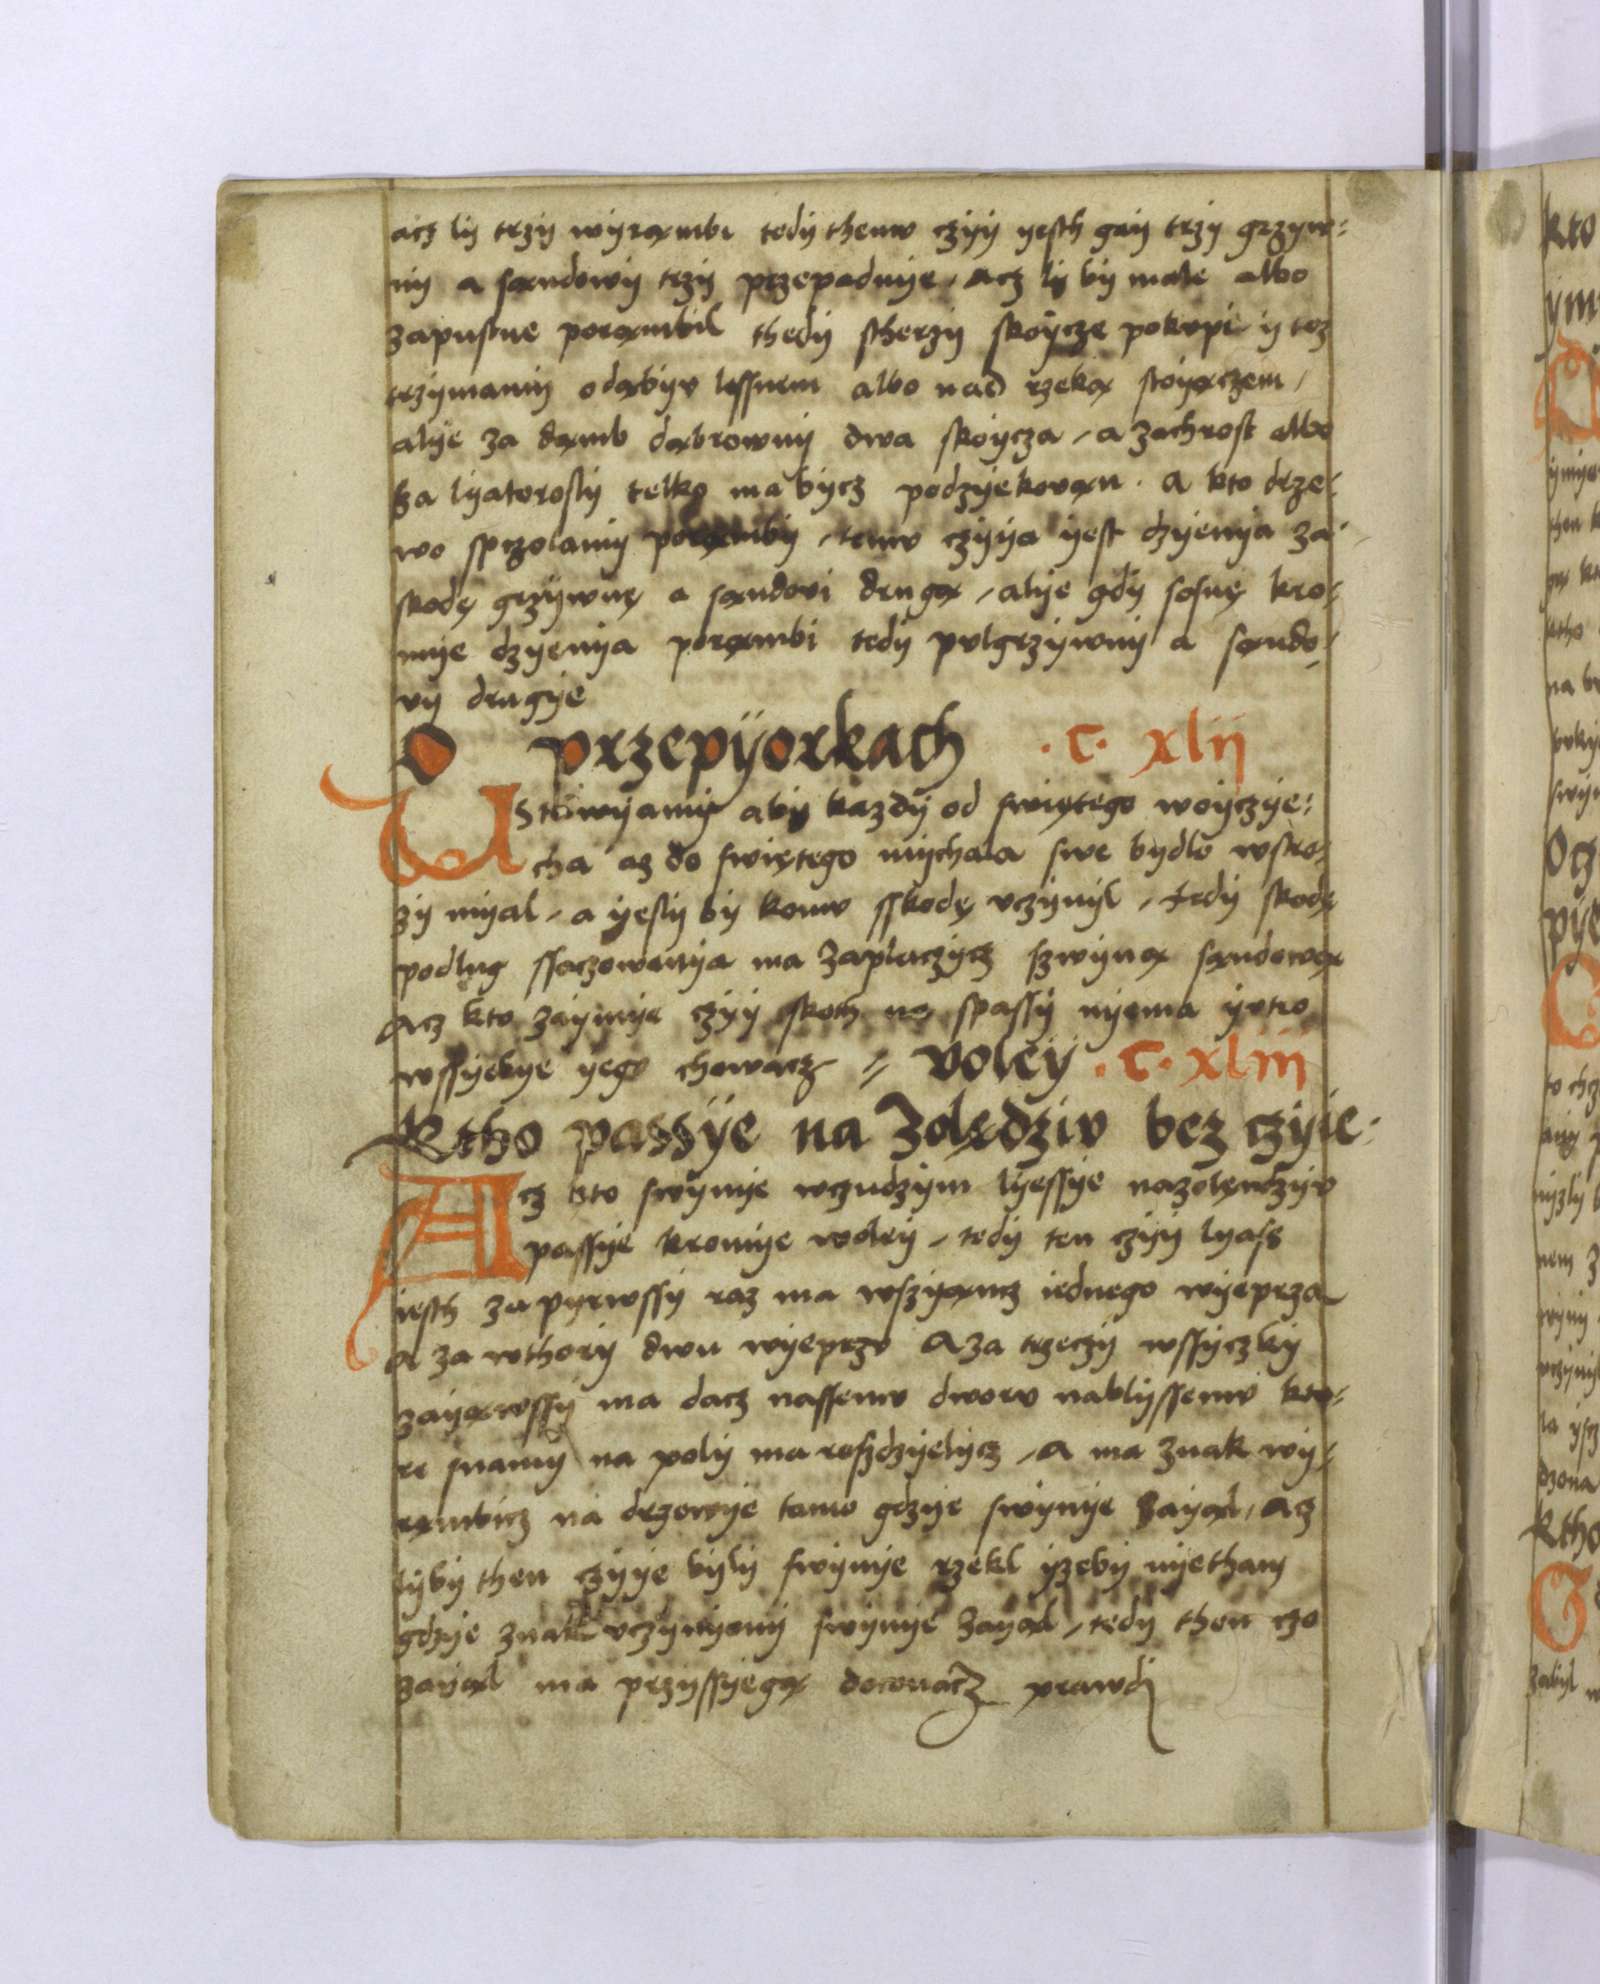 acz ly trzy wyrambi tedy themv czyy yesth gay trzy grzyw-
ny a sandowy trzy przepadnye, acz ly by male albo
zapustne porambil thedy stherzy skoycze pokvpi y tez
trzymamy o dabyv lessnem albo nad rzeka stoyaczem,
alye za damb dabrowny dwa skoycza, a zachrost albo
za lyatorosly telko ma bycz podzyekovan. A kto drze-
wo spczolamy porambi, temv czyya yest dzyenya za
skodę grzywnę a sandovi druga, alye gdy sosnę kro-
mye dzyenya porambi tedy pvlgrzywny a sando-
vy drugye
O przepyorkach .C. xlii
Vstawyamy aby kazdy od swiętego woyczye-
cha az do swiętego mychala swe bydlo wstro-
zy myal, a yesly by komv sskodę vczynyl, tedy skodę
podlug ssaczowanya ma zaplaczycz szwyna sandowa
Acz kto zaymye czyy skoth na spassy nyema yvtro
wssyekye yego chowacz = voley .C. xliii
Ktho passye na zolędziv bez czyie-
Acz kto swynye wczudzym lyessye nazolendzyv
passye kromye woley, tedy ten czyy lyass
iesth za pyrwssy raz ma wszyancz iednego wyeprza
A za wthory dwu wyeprzv A za trzeczy wssyczky
zayawssy ma dacz nassemv dworv nablyssemv kto-
re snamy na poly ma roszdzyelycz, A ma znak wy-
rambicz na drzewye tamo gdzye swynye zayal, Acz
lyby then czyye byly swynye rzekl yzeby nyetham
gdzye znak vczynyony swynye zayal, tedy then czo
zayal ma przyssyega doconacz prawdy
Ktho